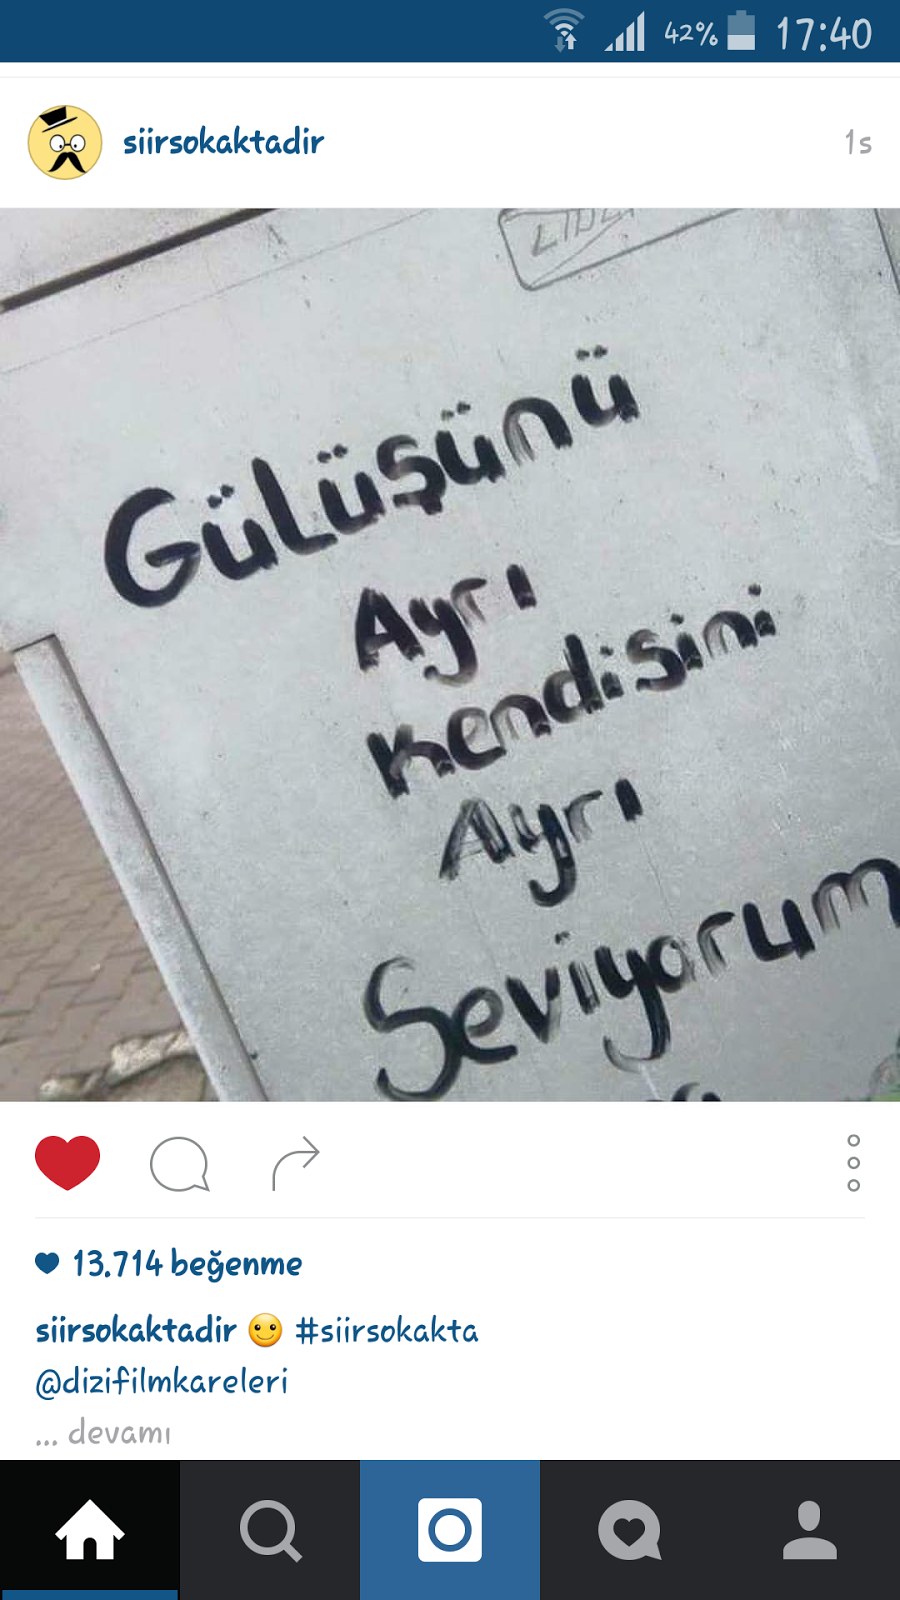 42% 17:40
siirsokaktadir 1s
Gülüşünü
Ayrı
kendisini
Ayrı
Seviyorum
13.714 beğenme
siirsokaktadir 🙂 #siirsokakta
@dizifilmkareleri
... devamı